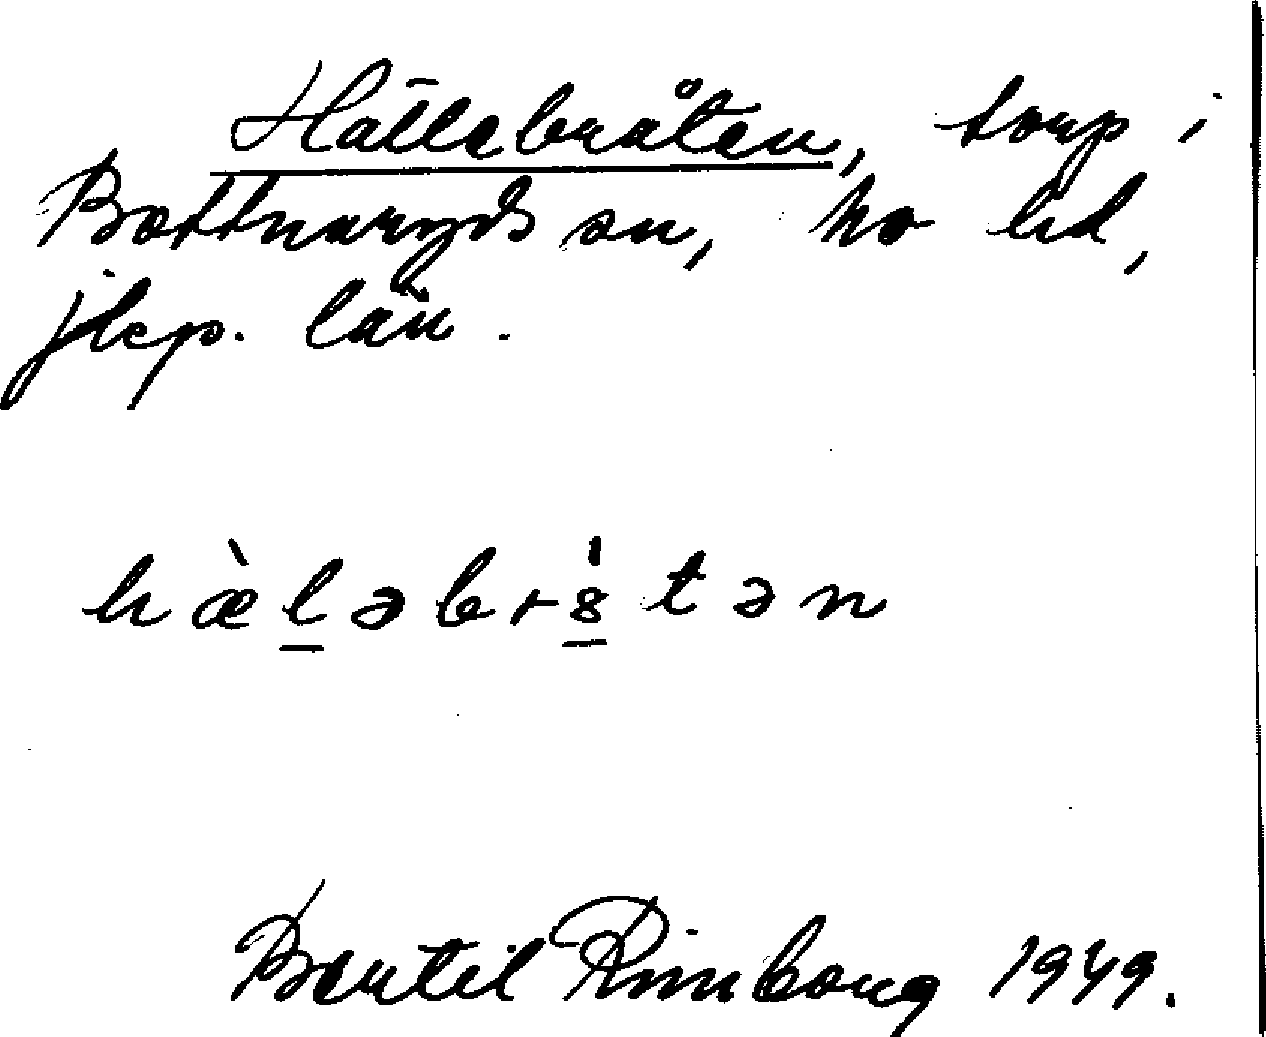 Hällebråten, torp i
Bottnaryds sn, Mo hd,
Jkp. län.
hæ̀l̲əbr8̲̍tən
Bertil Rimborg 1949.